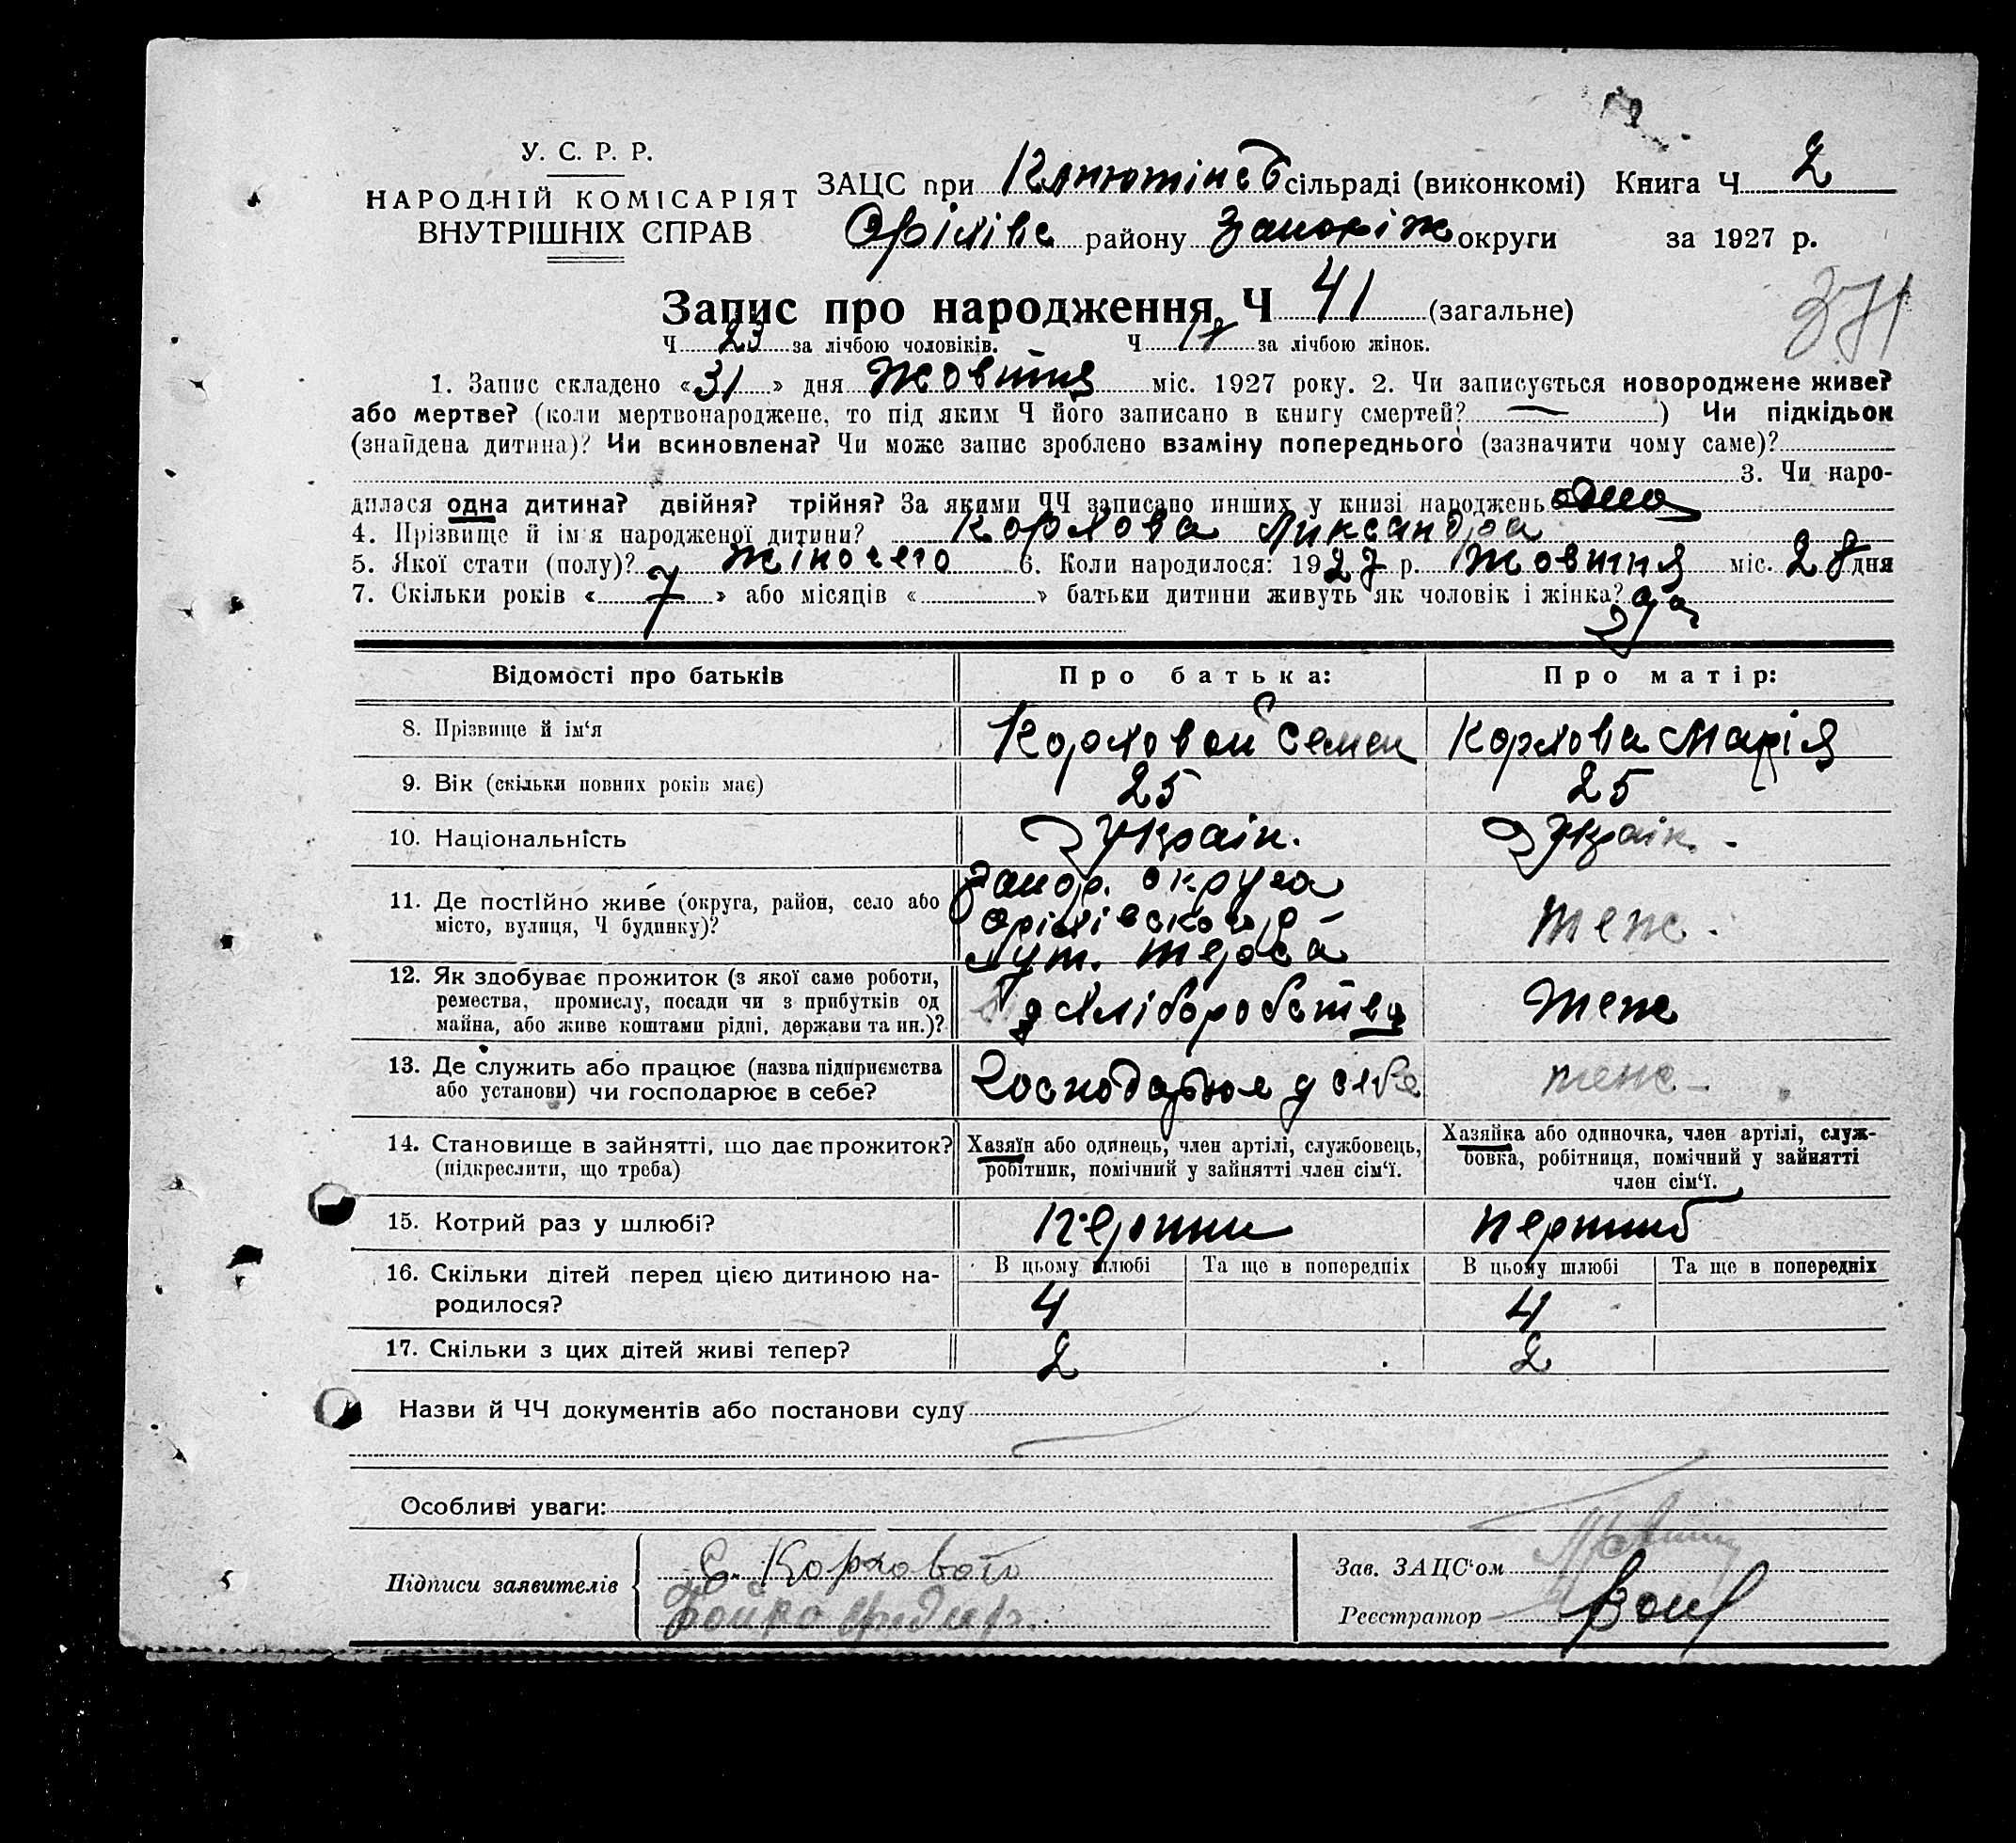 У. С. Р. Р.
НАРОДНІЙ КОМІСАРІЯТ
ВНУТРІШНІХ СПРАВ
ЗАЦС при сільраді (виконкомі) Книга Ч 2
Оріхівс району Запоріж округи за 1927 р.
Запис про народження Ч 41 (загальне)
371
Ч 23 за лічбою чоловіків. Ч за лічбою жінок.
1. Запис складено «31» дня Жовтня міс. 1927 року. 2. Чи записується новороджене живе?
або мертве? (коли мертвонароджене, то під яким Ч його записано в книгу смертей? — ) Чи підкідьок
(знайдена дитина)? Чи всиновлена? Чи може запис зроблено взаміну попереднього (зазначити чому саме)?
3. Чи наро-
дилася одна дитина? двійня? трійня? За якими ЧЧ записано инших у книзі народжень одна
4. Прізвище й ім'я народженої дитини? Корхова Ликсандра
5. Якої стати (полу)? жіночого 6. Коли народилося: 1927 р. Жовтня міс. 28 дня
7. Скільки років «7» або місяців « » батьки дитини живуть як чоловік і жінка?
Відомості про батьків
Про батька:
Про матір:
8. Прізвище й ім'я
Корховой Семен
Корхова Марія
9. Вік (скільки повних років має)
25
25
10. Національність
Україн.
Україн.
11. Де постійно живе (округа, район, село або
місто, вулиця, Ч будинку)?
Запор. округа
Оріхівського р-
хут. Терса
Теж.
12. Як здобуває прожиток (з якої саме роботи,
ремества, промислу, посади чи з прибутків од
майна, або живе коштами рідні, держави та ин.)?
хліборобства
Теж
13. Де служить або працює (назва підприємства
або установи) чи господарює в себе?
Господарює у себе
теж-
14. Становище в зайнятті, що дає прожиток?
(підкреслити, що треба)
Хазяїн або одинець, член артілі, службовець,
робітник, помічний у зайнятті член сім'ї.
Хазяйка або одиночка, член артілі, служ-
бовка, робітниця, помічний у зайнятті
член сім'ї.
15. Котрий раз у шлюбі?
Перший
Перший
16. Скільки дітей перед цією дитиною на-
родилося?
В цьому шлюбі Та ще в попередніх В цьому шлюбі Та ще в попередніх
4
4
17. Скільки з цих дітей живі тепер?
2
2
Назви й ЧЧ документів або постанови суду
Особливі уваги:
Підписи заявителів
С. Корховой
Зав. ЗАЦС'ом
Реєстратор